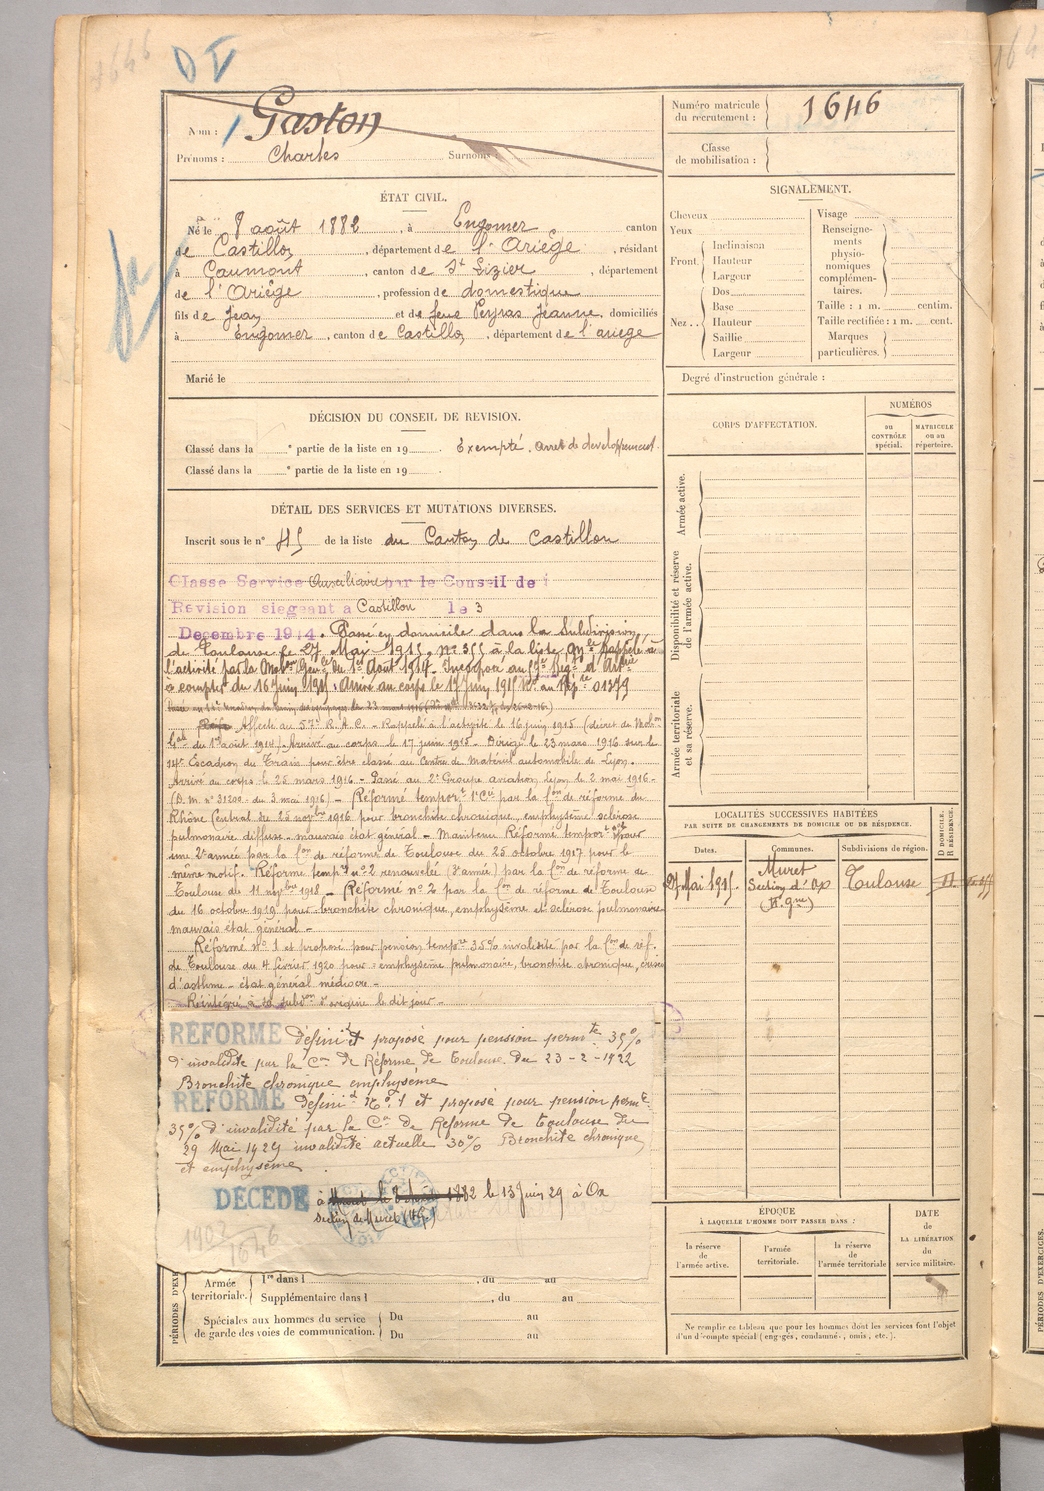 1646
Nom : Gaston
Prénoms : Charles Surnoms :
Numéro matricule du recrutement : 1646
Classe de mobilisation :
ÉTAT CIVIL.
Né le 8 août 1882, à Engomer canton
de Castillon, département de l'Ariège, résidant
à Caumont, canton de St Lizier, département
de l'Ariège, profession de domestique
fils de Jean et de feue Peyras Jeanne, domiciliés
à Engomer, canton de Castillon, département de l'ariège
Marié le
SIGNALEMENT.
Cheveux
Yeux
Front. Inclinaison
Hauteur
Largeur
Nez.. Dos
Base
Hauteur
Saillie
Largeur
Visage
Renseignements physionomiques complémentaires.
Taille : 1 m. centim.
Taille rectifiée : 1 m. cent.
Marques particulières.
Degré d'instruction générale :
DÉCISION DU CONSEIL DE REVISION.
Classé dans la e partie de la liste en 19 . Exempté. arrêt de développement.
Classé dans la e partie de la liste en 19 .
DÉTAIL DES SERVICES ET MUTATIONS DIVERSES.
Inscrit sous le n° 45 de la liste du Canton de Castillon
Classé Service Auxiliaire par le Conseil de
Révision siégeant a Castillon le 3
Decembre 1914. Passé en domicile dans la Subdivision
de Toulouse le 27 Mai 1915, N° 355 à la liste Rappelé à
l'activité par la Mob Gén du 1er Aout 1914. Incorporé au Régt d'Artie
à compter du 16 Juin 1915. Arrivé au corps le 17 Juin 1915 No au Rép 01379
Affecté au 57e R.A.C. - Rappelé à l'activité le 16 juin 1915 (décret de Mobon
Gale du 1er août 1914). Arrivé au corps le 17 juin 1915 - Dirigé le 23 mars 1916 sur le
14e Escadron du Train pour être classé au Centre de Matériel automobile de Lyon.
Arrivé au corps le 25 mars 1916 - Passé au 2e Groupe aviation Lyon le 2 mai 1916 -
(D. M. n° 31200 - du 3 mai 1916) - Réformé temport 1e Cie par la Con de réforme du
Rhône Central du novbre 1916 pour bronchite chronique, emphysème sclérose
pulmonaire diffuse - mauvais état général - Maintenu Réformé temport pour
une 2e année par la Con de réforme de Toulouse du 25 octobre 1917 pour le
même motif. Réforme tempre n° 2 renouvelée ( année) par la Con de réforme de
Toulouse du 11 novbre 1918 - Réformé n° 2 par la Con de réforme de Toulouse
du 16 octobre 1919 pour bronchite chronique, emphysème et sclérose pulmonaire
mauvais état général -
Réformé n° 1 et proposé pour pension tempre 35% invalidité par la Con de réf.
de Toulouse du 4 février 1920 pour : emphysème pulmonaire, bronchite chronique, crises
d'asthme - état général médiocre -
Réintégré à la subdon d'origine le dit jour -
RÉFORMÉ Définit et proposé pour pension permte 35%
d'invalidité par la Con de Réforme de Toulouse du 23-2-1922
Bronchite chronique emphysème
RÉFORMÉ Définit N° 1 et proposé pour pension perm
35% d'invalidité par la Con de Réforme de Toulouse du
29 Mai 1929 invalidité actuelle 30% Bronchite chronique
et emphysème
DÉCÉDÉ à le 13 Juin 29 à Ox
Section de Muret (H.G.)
1902
1646
CORPS D'AFFECTATION.
NUMÉROS
au CONTRÔLE spécial.
MATRICULE ou au répertoire.
Armée active.
Disponibilité et réserve de l'armée active.
Armée territoriale et sa réserve.
LOCALITÉS SUCCESSIVES HABITÉES
PAR SUITE DE CHANGEMENTS DE DOMICILE OU DE RÉSIDENCE.
Dates.
Communes.
Subdivisions de région.
D DOMICILE. R RÉSIDENCE.
27 Mai 1915. Muret Toulouse
Section d'Ox
(H. gne)
ÉPOQUE
À LAQUELLE L'HOMME DOIT PASSER DANS :
la réserve de l'armée active.
l'armée territoriale.
la réserve de l'armée territoriale
DATE de LA LIBÉRATION du service militaire.
PÉRIODES D'EXERCICES.
Armée territoriale. 1re dans l , du au
Supplémentaire dans l , du au
Spéciales aux hommes du service de garde des voies de communication. Du au
Du au
Ne remplir ce tableau que pour les hommes dont les services font l'objet
d'un décompte spécial (engagés, condamnés, omis, etc.).
PÉRIODES D'EXERCICES.